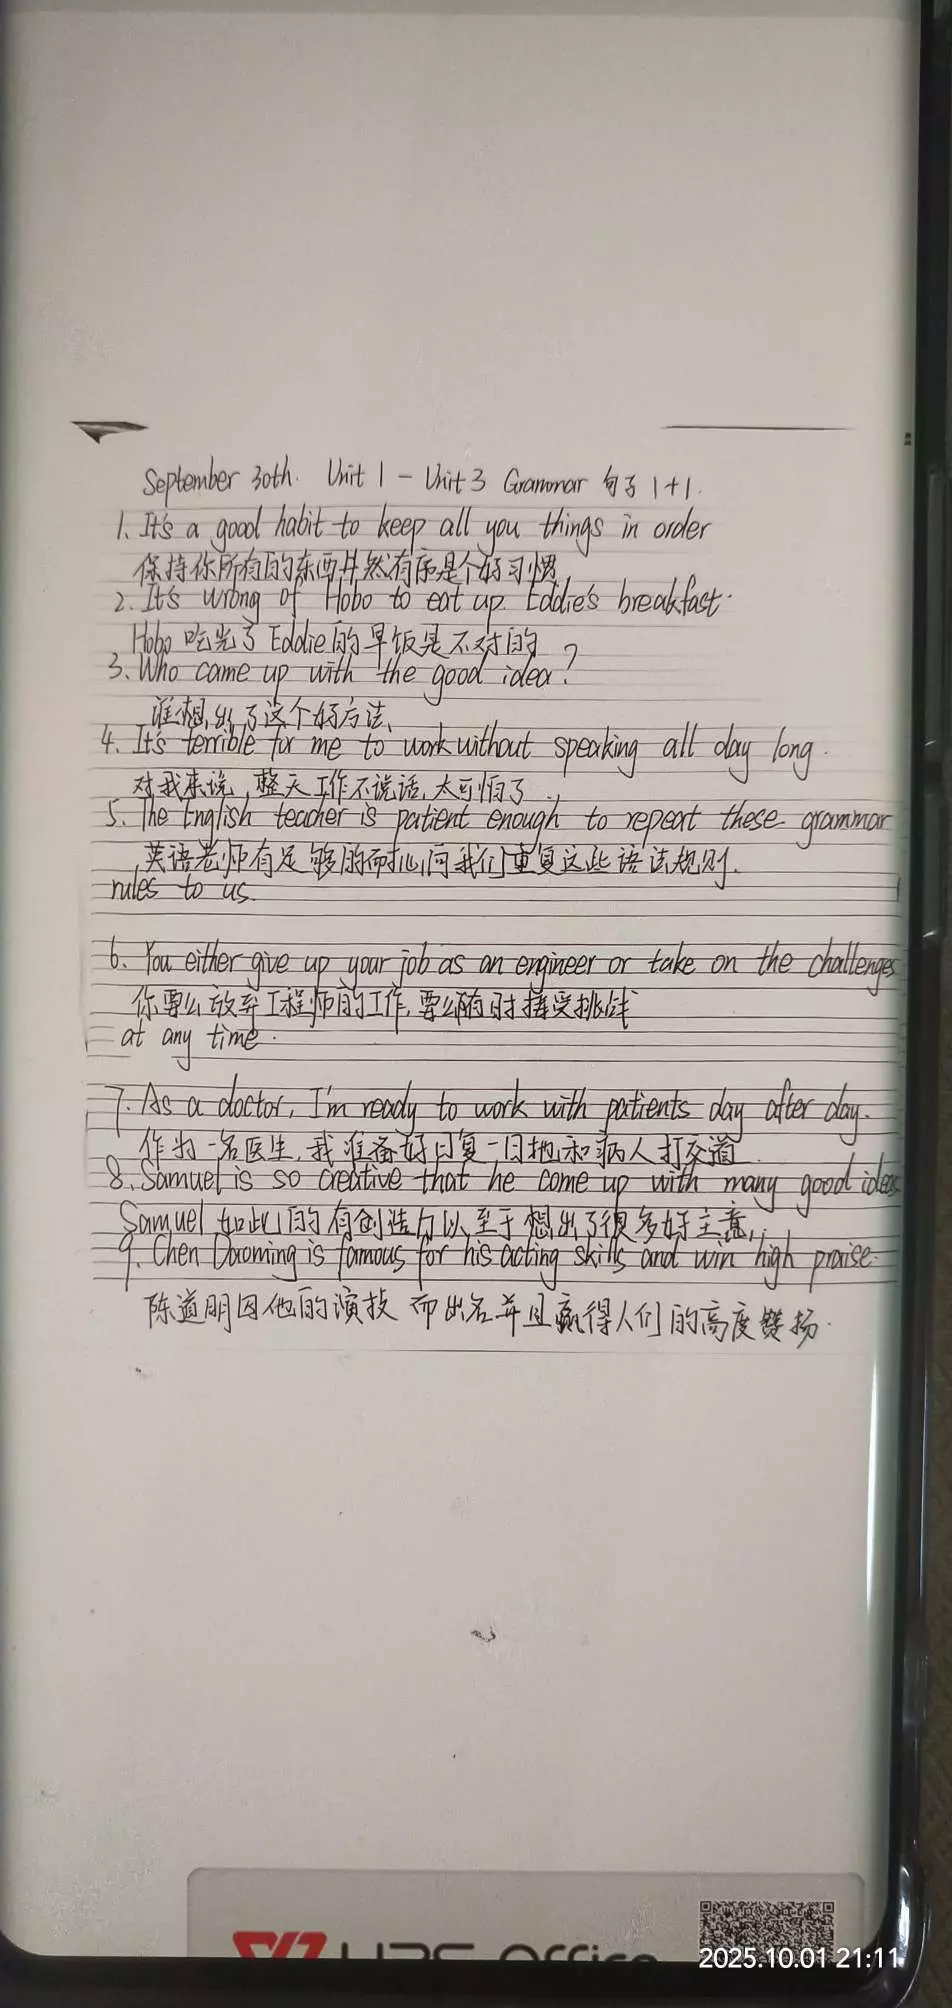 September 30th. Unit 1 - Unit 3 Grammar 句子 1+1.
1. It's a good habit to keep all you things in order
保持你所有的东西井然有序是个好习惯
2. It's wrong of Hobo to eat up Eddie's breakfast.
Hobo 吃光了 Eddie的早饭是不对的
3. Who came up with the good idea?
谁想出了这个好方法
4. It's terrible for me to work without speaking all day long.
对我来说,整天工作不说话,太可怕了.
5. The English teacher is patient enough to repeat these grammar
英语老师有足够的耐心向我们重复这些语法规则.
rules to us.
6. You either give up your job as an engineer or take on the challenges
你要么放弃工程师的工作,要么随时接受挑战
at any time.
7. As a doctor, I'm ready to work with patients day after day.
作为一名医生,我准备好日复一日地和病人打交道
8. Samuel is so creative that he come up with many good ideas
Samuel 如此的有创造力以至于想出了很多好主意,
9. Chen Daoming is famous for his acting skills and win high praise.
陈道明因他的演技而出名并且赢得人们的高度赞扬.
Office
2025.10.01 21:11